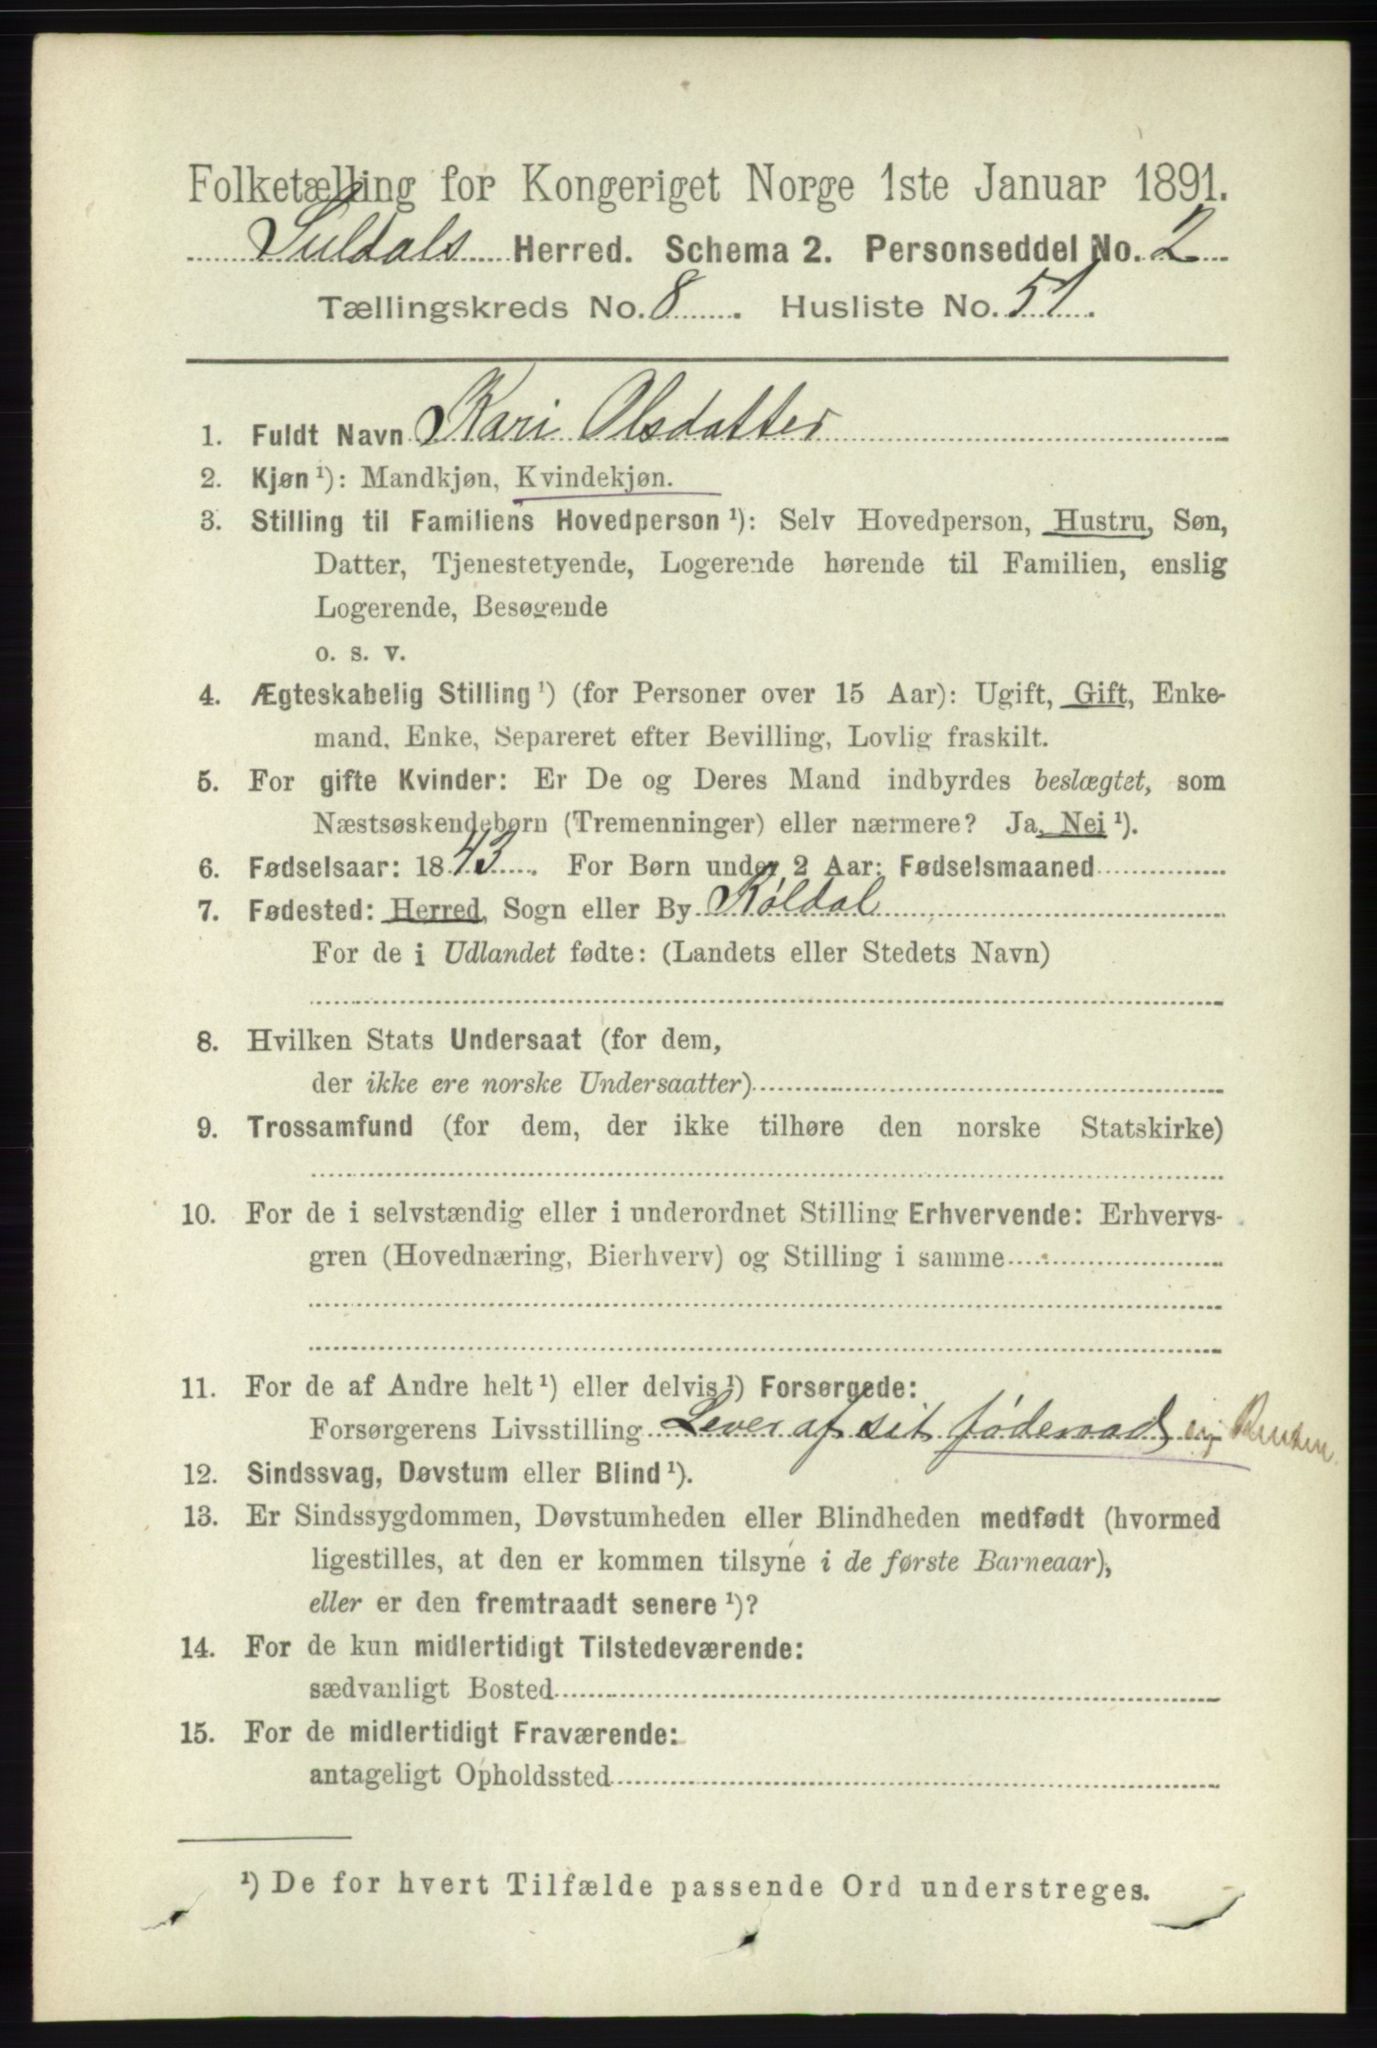 Folketælling for Kongeriget Norge 1ste Januar 1891.
Suldals Herred. Schema 2. Personseddel No. 2
Tællingskreds No. 8. Husliste No. 51.
1. Fuldt Navn Kari Olsdatter
2. Kjøn ¹): Mandkjøn, Kvindekjøn.
3. Stilling til Familiens Hovedperson ¹): Selv Hovedperson, Hustru, Søn,
Datter, Tjenestetyende, Logerende hørende til Familien, enslig
Logerende, Besøgende
o. s. v.
4. Ægteskabelig Stilling ¹) (for Personer over 15 Aar): Ugift, Gift, Enke-
mand, Enke, Separeret efter Bevilling, Lovlig fraskilt.
5. For gifte Kvinder: Er De og Deres Mand indbyrdes beslægtet, som
Næstsøskendebørn (Tremenninger) eller nærmere? Ja, Nei ¹).
6. Fødselsaar: 1843. For Børn under 2 Aar: Fødselsmaaned
7. Fødested: Herred, Sogn eller By Røldal
For de i Udlandet fødte: (Landets eller Stedets Navn)
8. Hvilken Stats Undersaat (for dem,
der ikke ere norske Undersaatter)
9. Trossamfund (for dem, der ikke tilhøre den norske Statskirke)
10. For de i selvstændig eller i underordnet Stilling Erhvervende: Erhvervs-
gren (Hovednæring, Bierhverv) og Stilling i samme
11. For de af Andre helt ¹) eller delvis ¹) Forsørgede:
Forsørgerens Livsstilling Lever af sit føderaad
12. Sindssvag, Døvstum eller Blind ¹).
13. Er Sindssygdommen, Døvstumheden eller Blindheden medfødt (hvormed
ligestilles, at den er kommen tilsyne i de første Barneaar),
eller er den fremtraadt senere ¹)?
14. For de kun midlertidigt Tilstedeværende:
sædvanligt Bosted
15. For de midlertidigt Fraværende:
antageligt Opholdssted
¹) De for hvert Tilfælde passende Ord understreges.